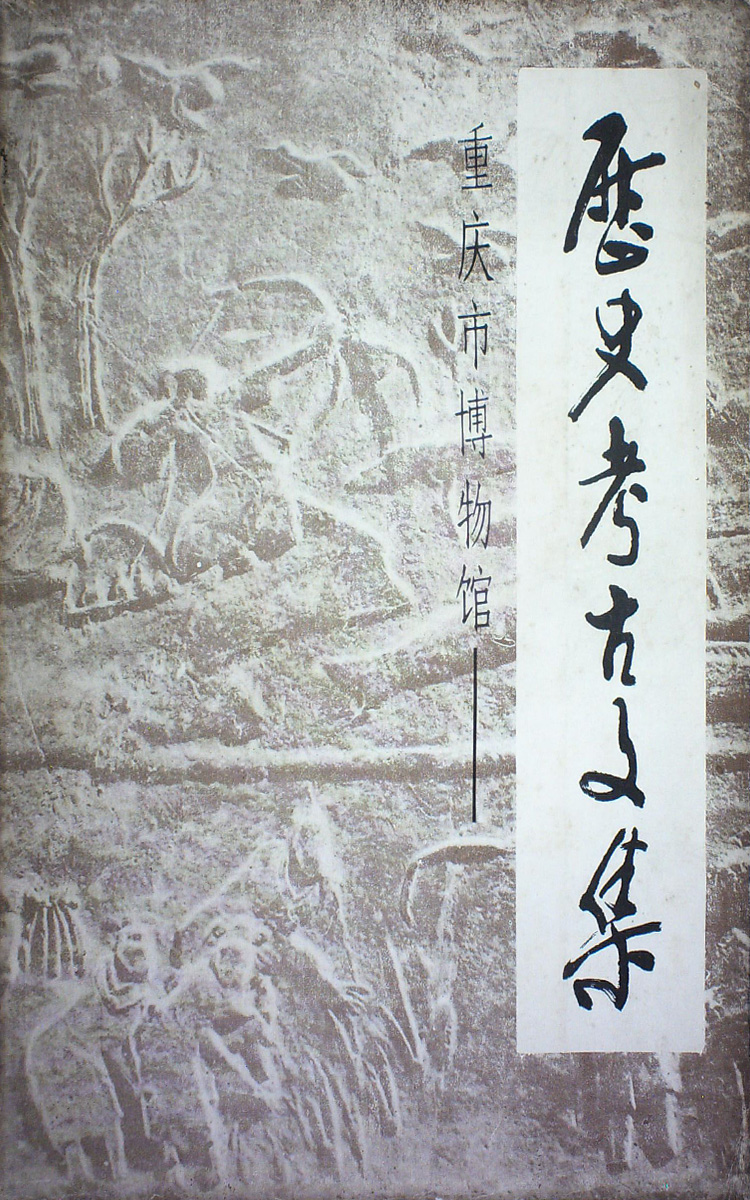 歷史考古文集
重庆市博物馆——